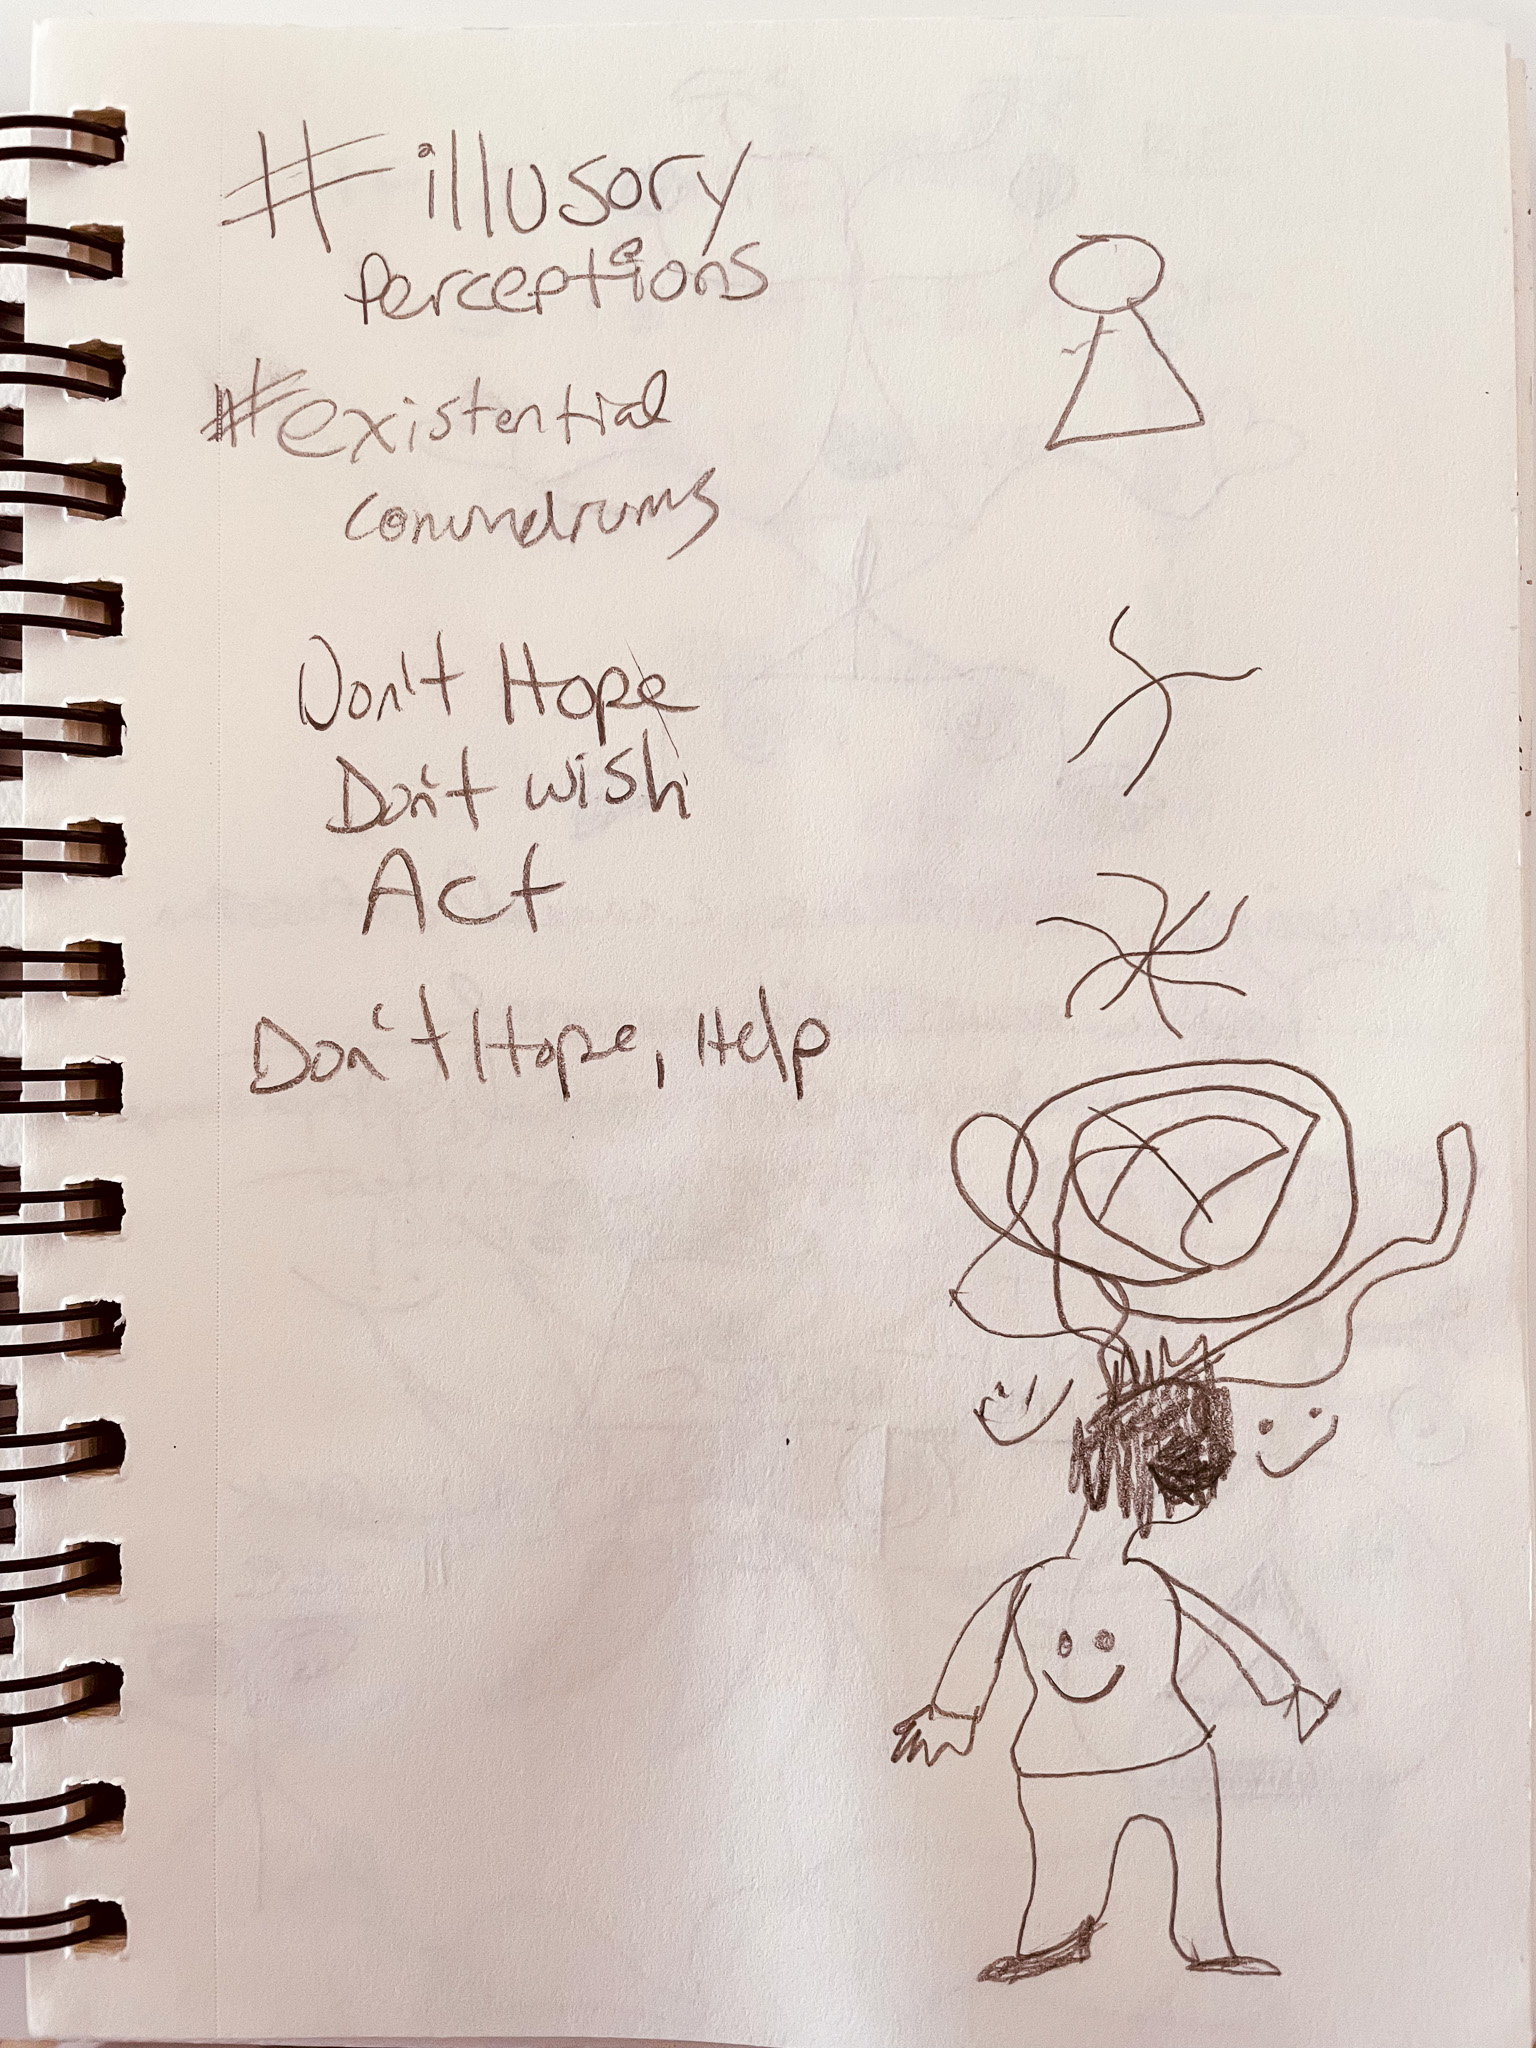 #illusory
perceptions
#existential
conundrums
Don't Hope
Don't wish
Act
Don't Hope, Help